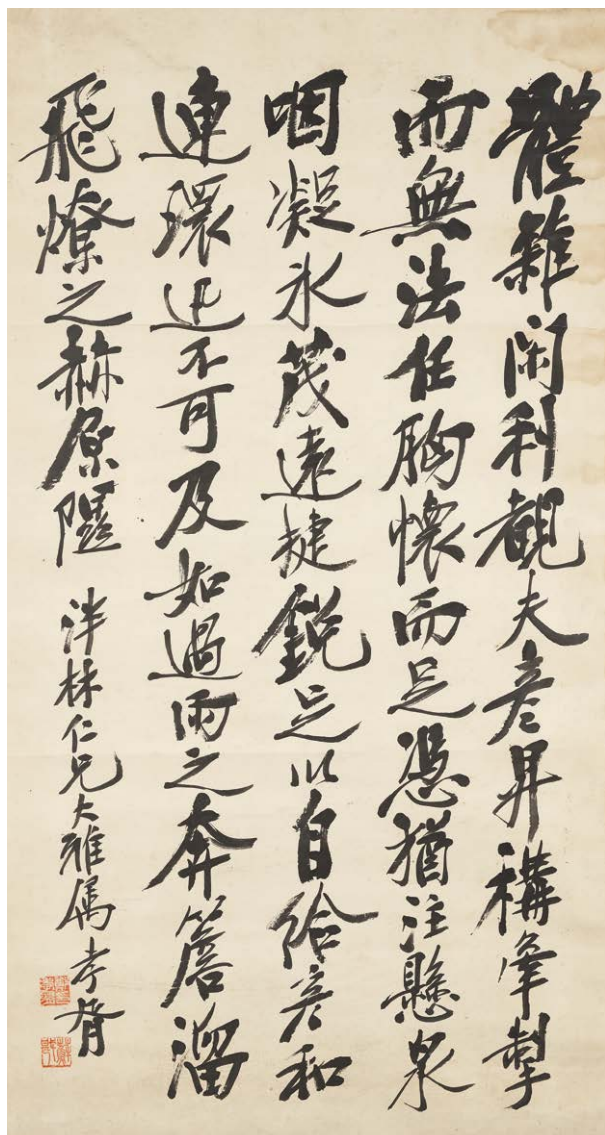 體雜閑利觀夫彥昇構牽掣
而無法任胸懷而足憑猶注懸泉
咽凝氷茂遠捷銳足以自給彥和
連環迅不可及如過雨之奔簷溜
飛燎之赫原隰
泮林仁兄大雅属 孝胥